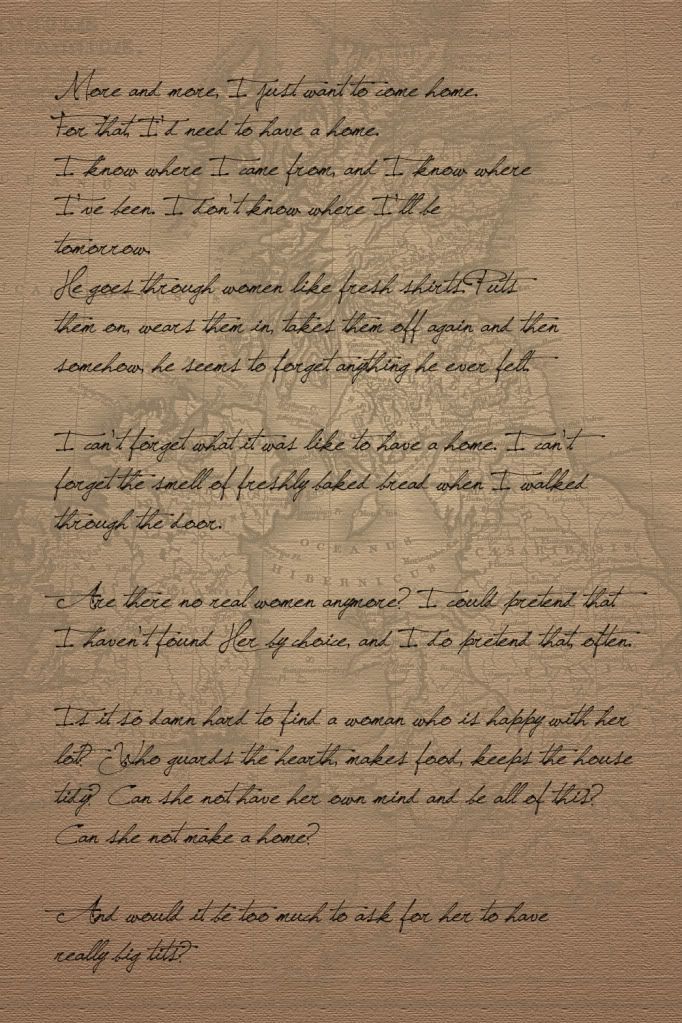 More and more, I just want to come home.
For that, I'd need to have a home.
I know where I came from, and I know where
I've been. I don't know where I'll be
tomorrow.
He goes through women like fresh shirts. Puts
them on, wears them in, takes them off again and then
somehow, he seems to forget anything he ever felt.
I can't forget what it was like to have a home. I can't
forget the smell of freshly baked bread when I walked
through the door.
OCEANUS
HIBERNICUS
CÆSARIENSIS
Are there no real women anymore? I could pretend that
I haven't found Her by choice, and I do pretend that, often.
Is it so damn hard to find a woman who is happy with her
lot? Who guards the hearth, makes food, keeps the house
tidy? Can she not have her own mind and be all of this?
Can she not make a home?
And would it be too much to ask for her to have
really big tits?